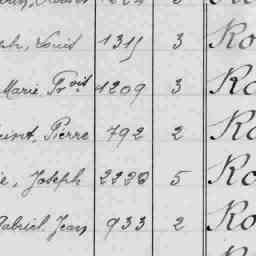 ph, Louis 1315 3 Ro
Marie Pr.vit 1209 3 Ro
aint, Pierre 792 2 Ro
e, Joseph 2226 5 Ro
Gabriel Jean 933 2 Ro